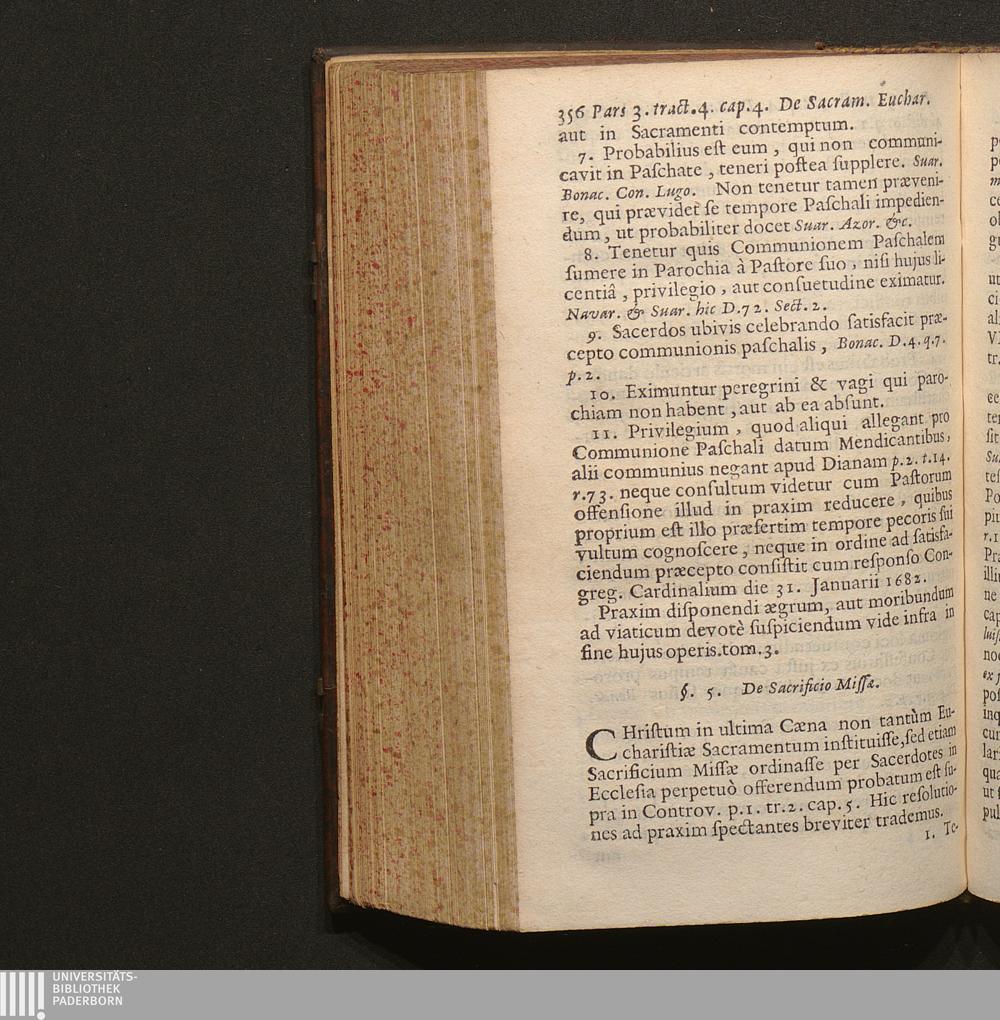 356 Pars 3. tract. 4. cap. 4. De Sacram. Euchar.
aut in Sacramenti contemptum.
7. Probabilius eſt eum, qui non communi-
cavit in Paſchate, teneri poſtea ſupplere. Suar.
Bonac. Con. Lugo. Non tenetur tamen præveni-
re, qui prævidet ſe tempore Paſchali impedien-
dum, ut probabiliter docet Suar. Azor. &c.
8. Tenetur quis Communionem Paſchalem
ſumere in Parochia à Paſtore ſuo, niſi hujus li-
centiâ, privilegio, aut conſuetudine eximatur.
Navar. & Suar. hic D. 72. Sect. 2.
9. Sacerdos ubivis celebrando ſatisfacit præ-
cepto communionis paſchalis, Bonac. D. 4. q. 7.
p. 2.
10. Eximuntur peregrini & vagi qui paro-
chiam non habent, aut ab ea abſunt.
11. Privilegium, quod aliqui allegant pro
Communione Paſchali datum Mendicantibus,
alii communius negant apud Dianam p. 2. t. 14.
r. 73. neque conſultum videtur cum Paſtorum
offenſione illud in praxim reducere, quibus
proprium eſt illo præſertim tempore pecoris ſui
vultum cognoſcere, neque in ordine ad ſatisfa-
ciendum præcepto conſiſtit cum reſponſo Con-
greg. Cardinalium die 31. Januarii 1682.
Praxim diſponendi ægrum, aut moribundum
ad viaticum devotè ſuſpiciendum vide infra in
fine hujus operis. tom. 3.
§. 5. De Sacrificio Miſſæ.
CHriſtum in ultima Cæna non tantùm Eu-
chariſtiæ Sacramentum inſtituiſſe, ſed etiam
Sacrificium Miſſæ ordinaſſe per Sacerdotes in
Eccleſia perpetuò offerendum probatum eſt ſu-
pra in Controv. p. 1. tr. 2. cap. 5. Hic reſolutio-
nes ad praxim ſpectantes breviter trademus.
1. Te-
UNIVERSITÄTS-
BIBLIOTHEK
PADERBORN